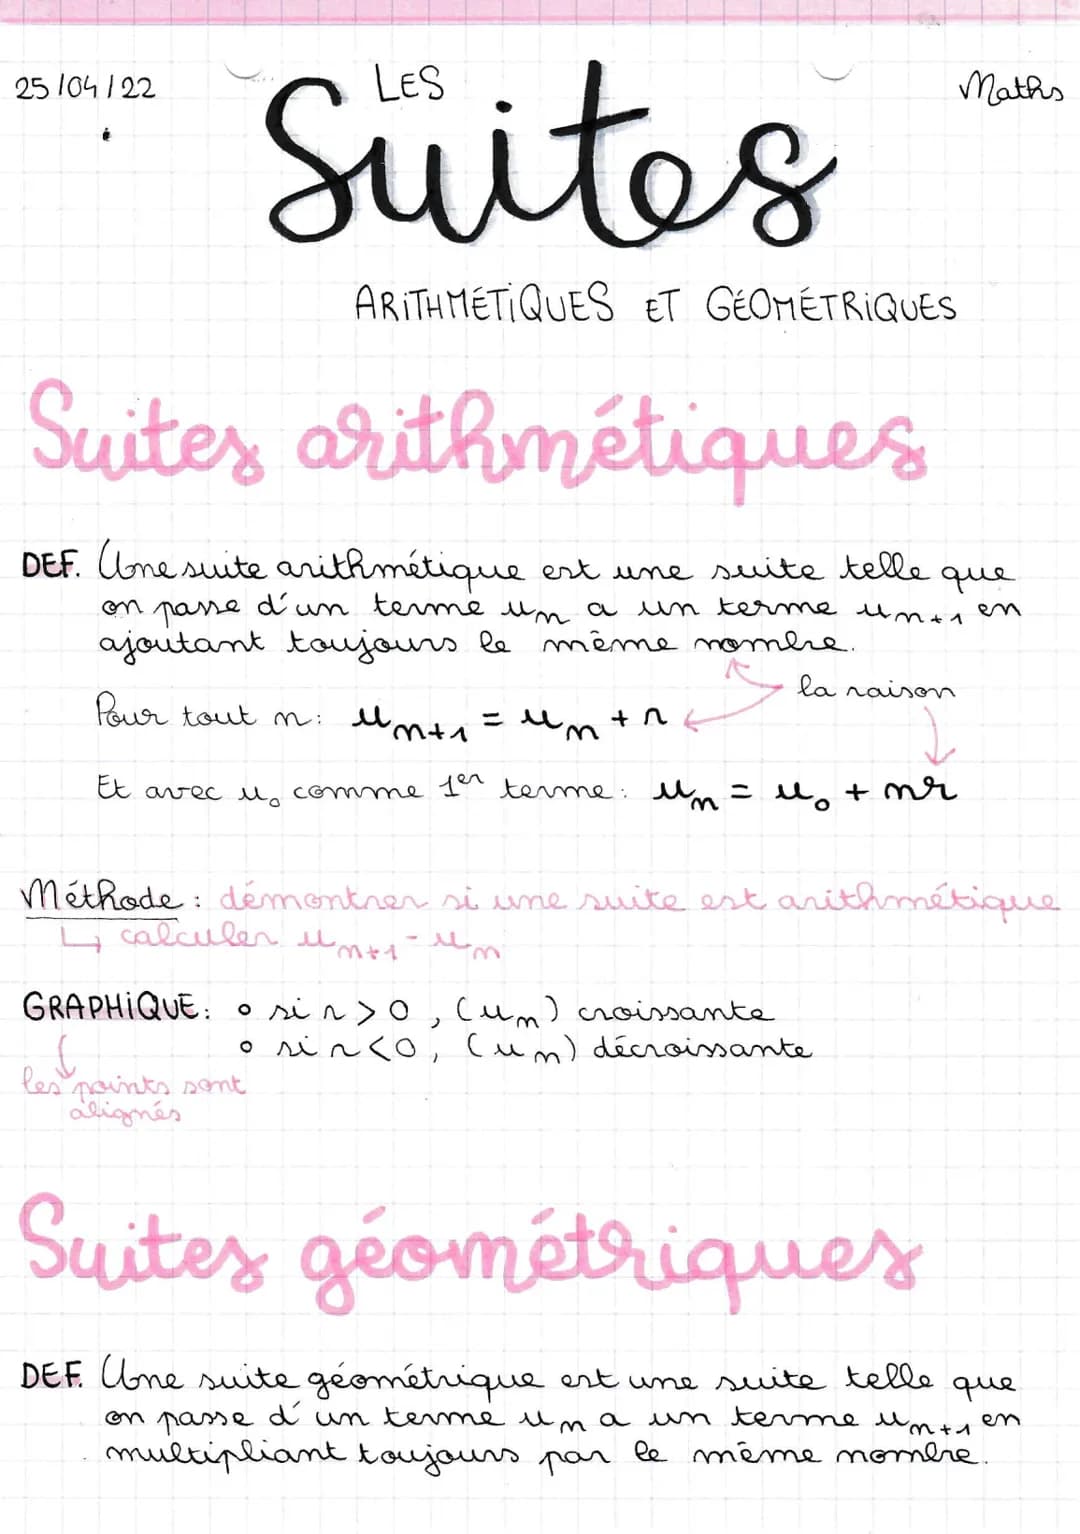 25/04/22
LES
Maths
Suites
ARITHMÉTIQUES ET GÉOMÉTRIQUES
Suites arithmétiques
DEF. Une suite arithmétique est une suite telle que
on passe d'un terme uₙ a un terme uₙ₊₁ en
ajoutant toujours le même nombre.
la raison
Pour tout n: uₙ₊₁ = uₙ + r
Et avec u₀ comme 1er terme: uₙ = u₀ + nr
Méthode : démontrer si une suite est arithmétique
↳ calculer uₙ₊₁ - uₙ
GRAPHIQUE: o si r > 0, (uₙ) croissante
o si r < 0, (uₙ) décroissante
les points sont
alignés
Suites géométriques
DEF. Une suite géométrique est une suite telle que
on passe d'un terme uₙ a un terme uₙ₊₁ en
multipliant toujours par le même nombre.